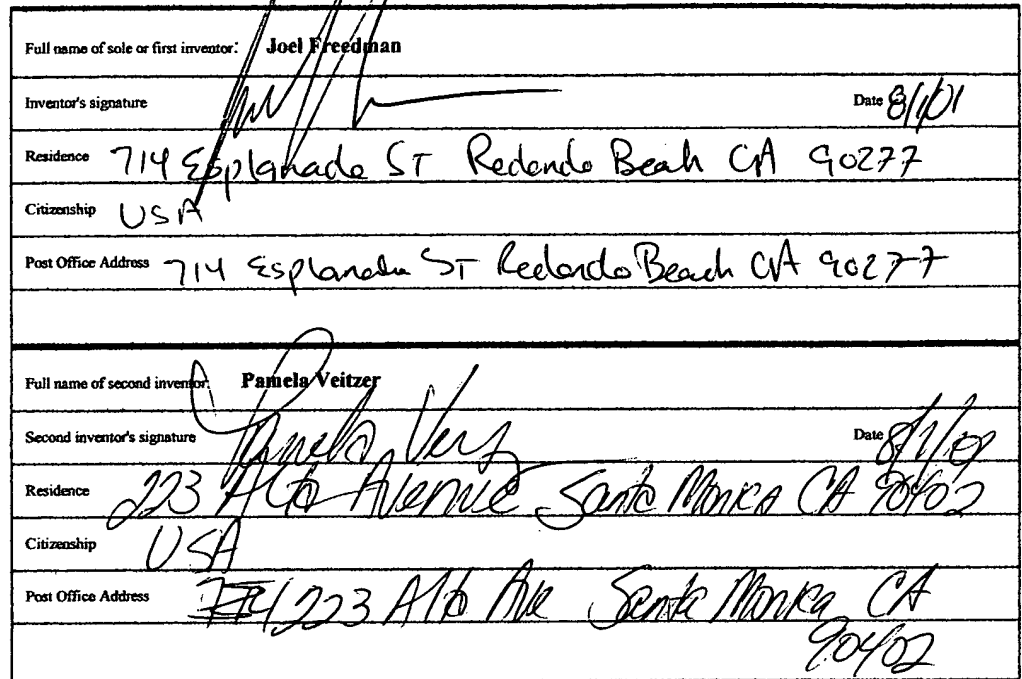 Full name of sole or first inventor: Joel Freedman
Inventor's signature Date 8/1/01
Residence 714 Esplanade ST Redondo Beach CA 90277
Citizenship USA
Post Office Address 714 Esplanade ST Redondo Beach CA 90277
Full name of second inventor: Pamela Veitzer
Second inventor's signature Pamela Date
Residence 223 Alta Avenue Santa Monica CA 90402
Citizenship USA
Post Office Address 223 Alta Ave Santa Monica CA
90402